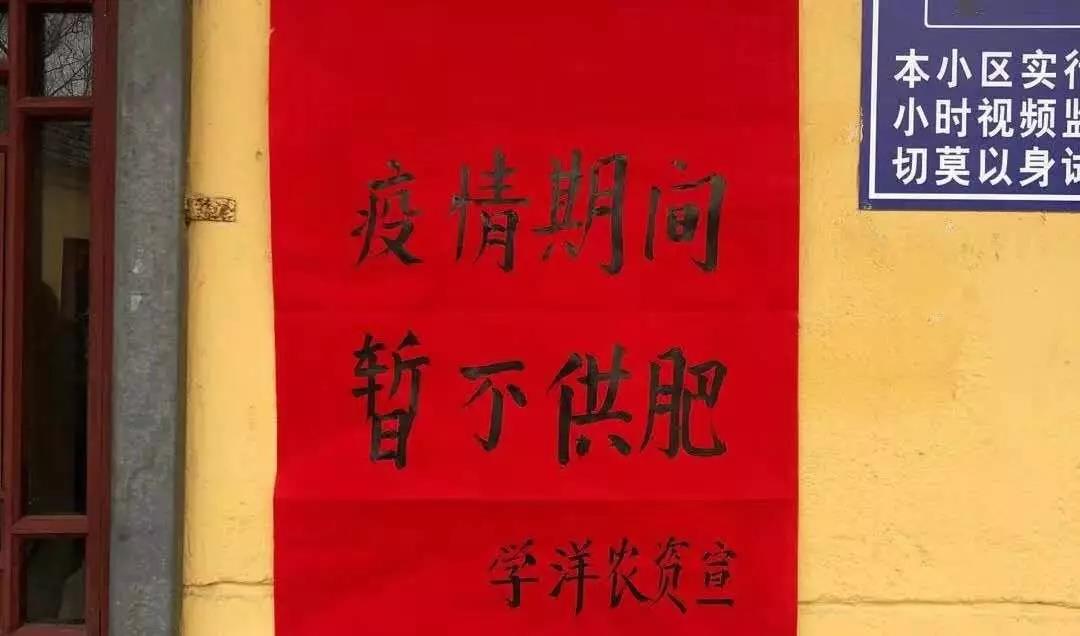 疫情期间
暂不供肥
学洋农资宣
本小区实行
小时视频监
切莫以身试